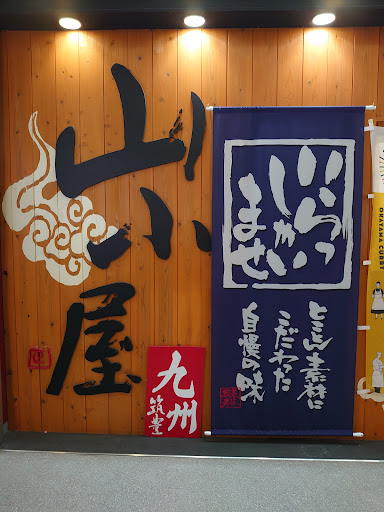 山小屋
九州
筑豊
いらっ
しゃい
ませ
とことん素材に
こだわった
自慢の味
OKAYAMA CURRY